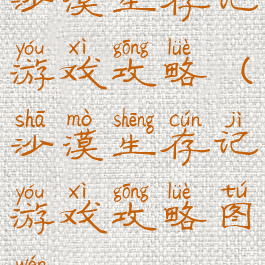 沙漠生存记
yóu xì gōng lüè
游戏攻略（
shā mò shēng cún jì
沙漠生存记
yóu xì gōng lüè tú
游戏攻略图
wén